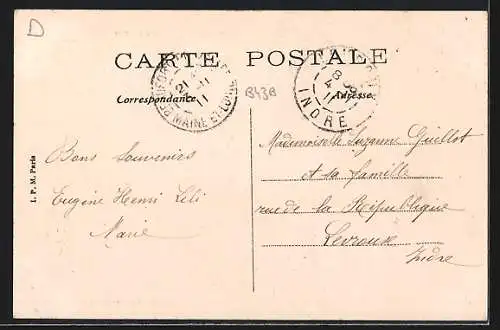 D
CARTE POSTALE
Correspondance
Adresse
B43B
ROCHEFORT
21
11
MAINE-ET-LOIRE
8
4
11
INDRE
I. P. M. Paris
Bons Souvenirs
Eugène Henri Lili
Marie
Mademoiselle Suzanne Guillot
et sa famille
rue de la République
Levroux
Indre